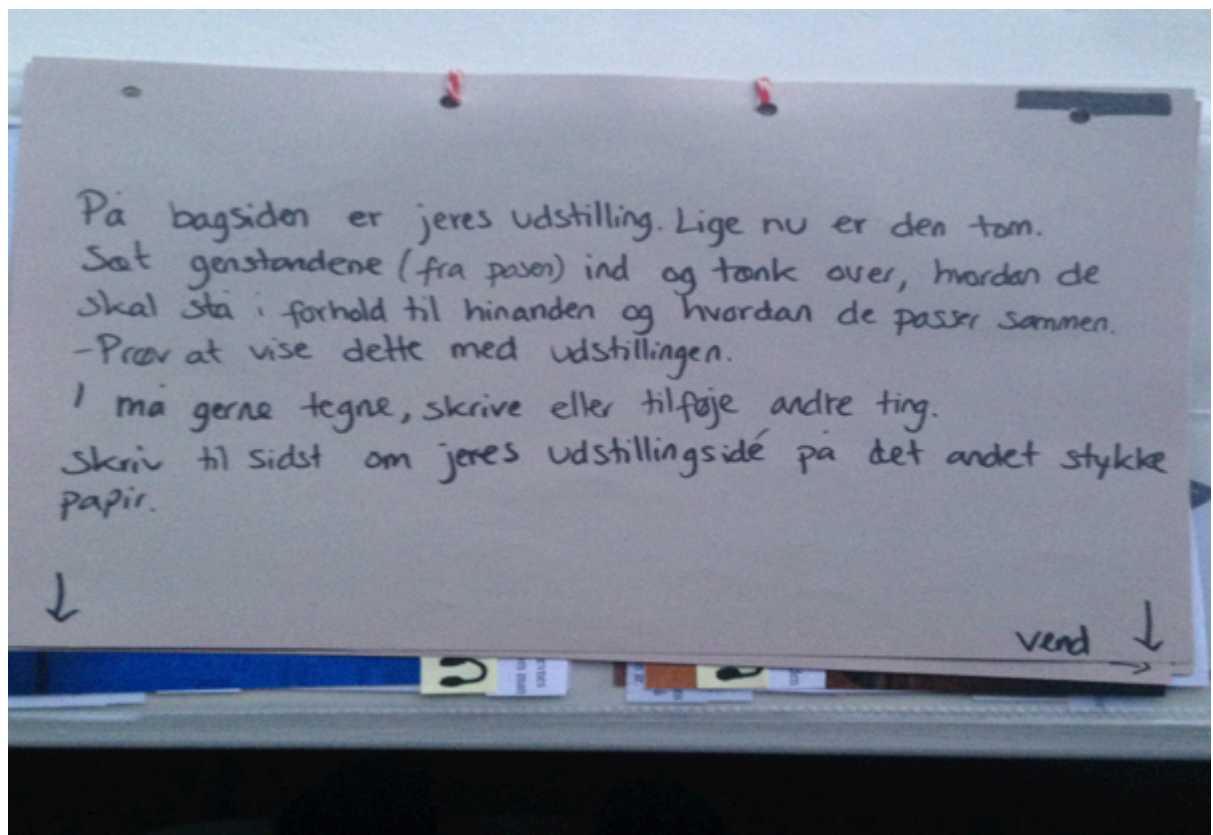 På bagsiden er jeres udstilling. Lige nu er den tom.
Sæt genstandene (fra posen) ind og tænk over, hvordan de
skal stå i forhold til hinanden og hvordan de passer sammen.
- Prøv at vise dette med udstillingen.
I må gerne tegne, skrive eller tilføje andre ting.
Skriv til sidst om jeres udstillingsidé på det andet stykke
papir.
vend